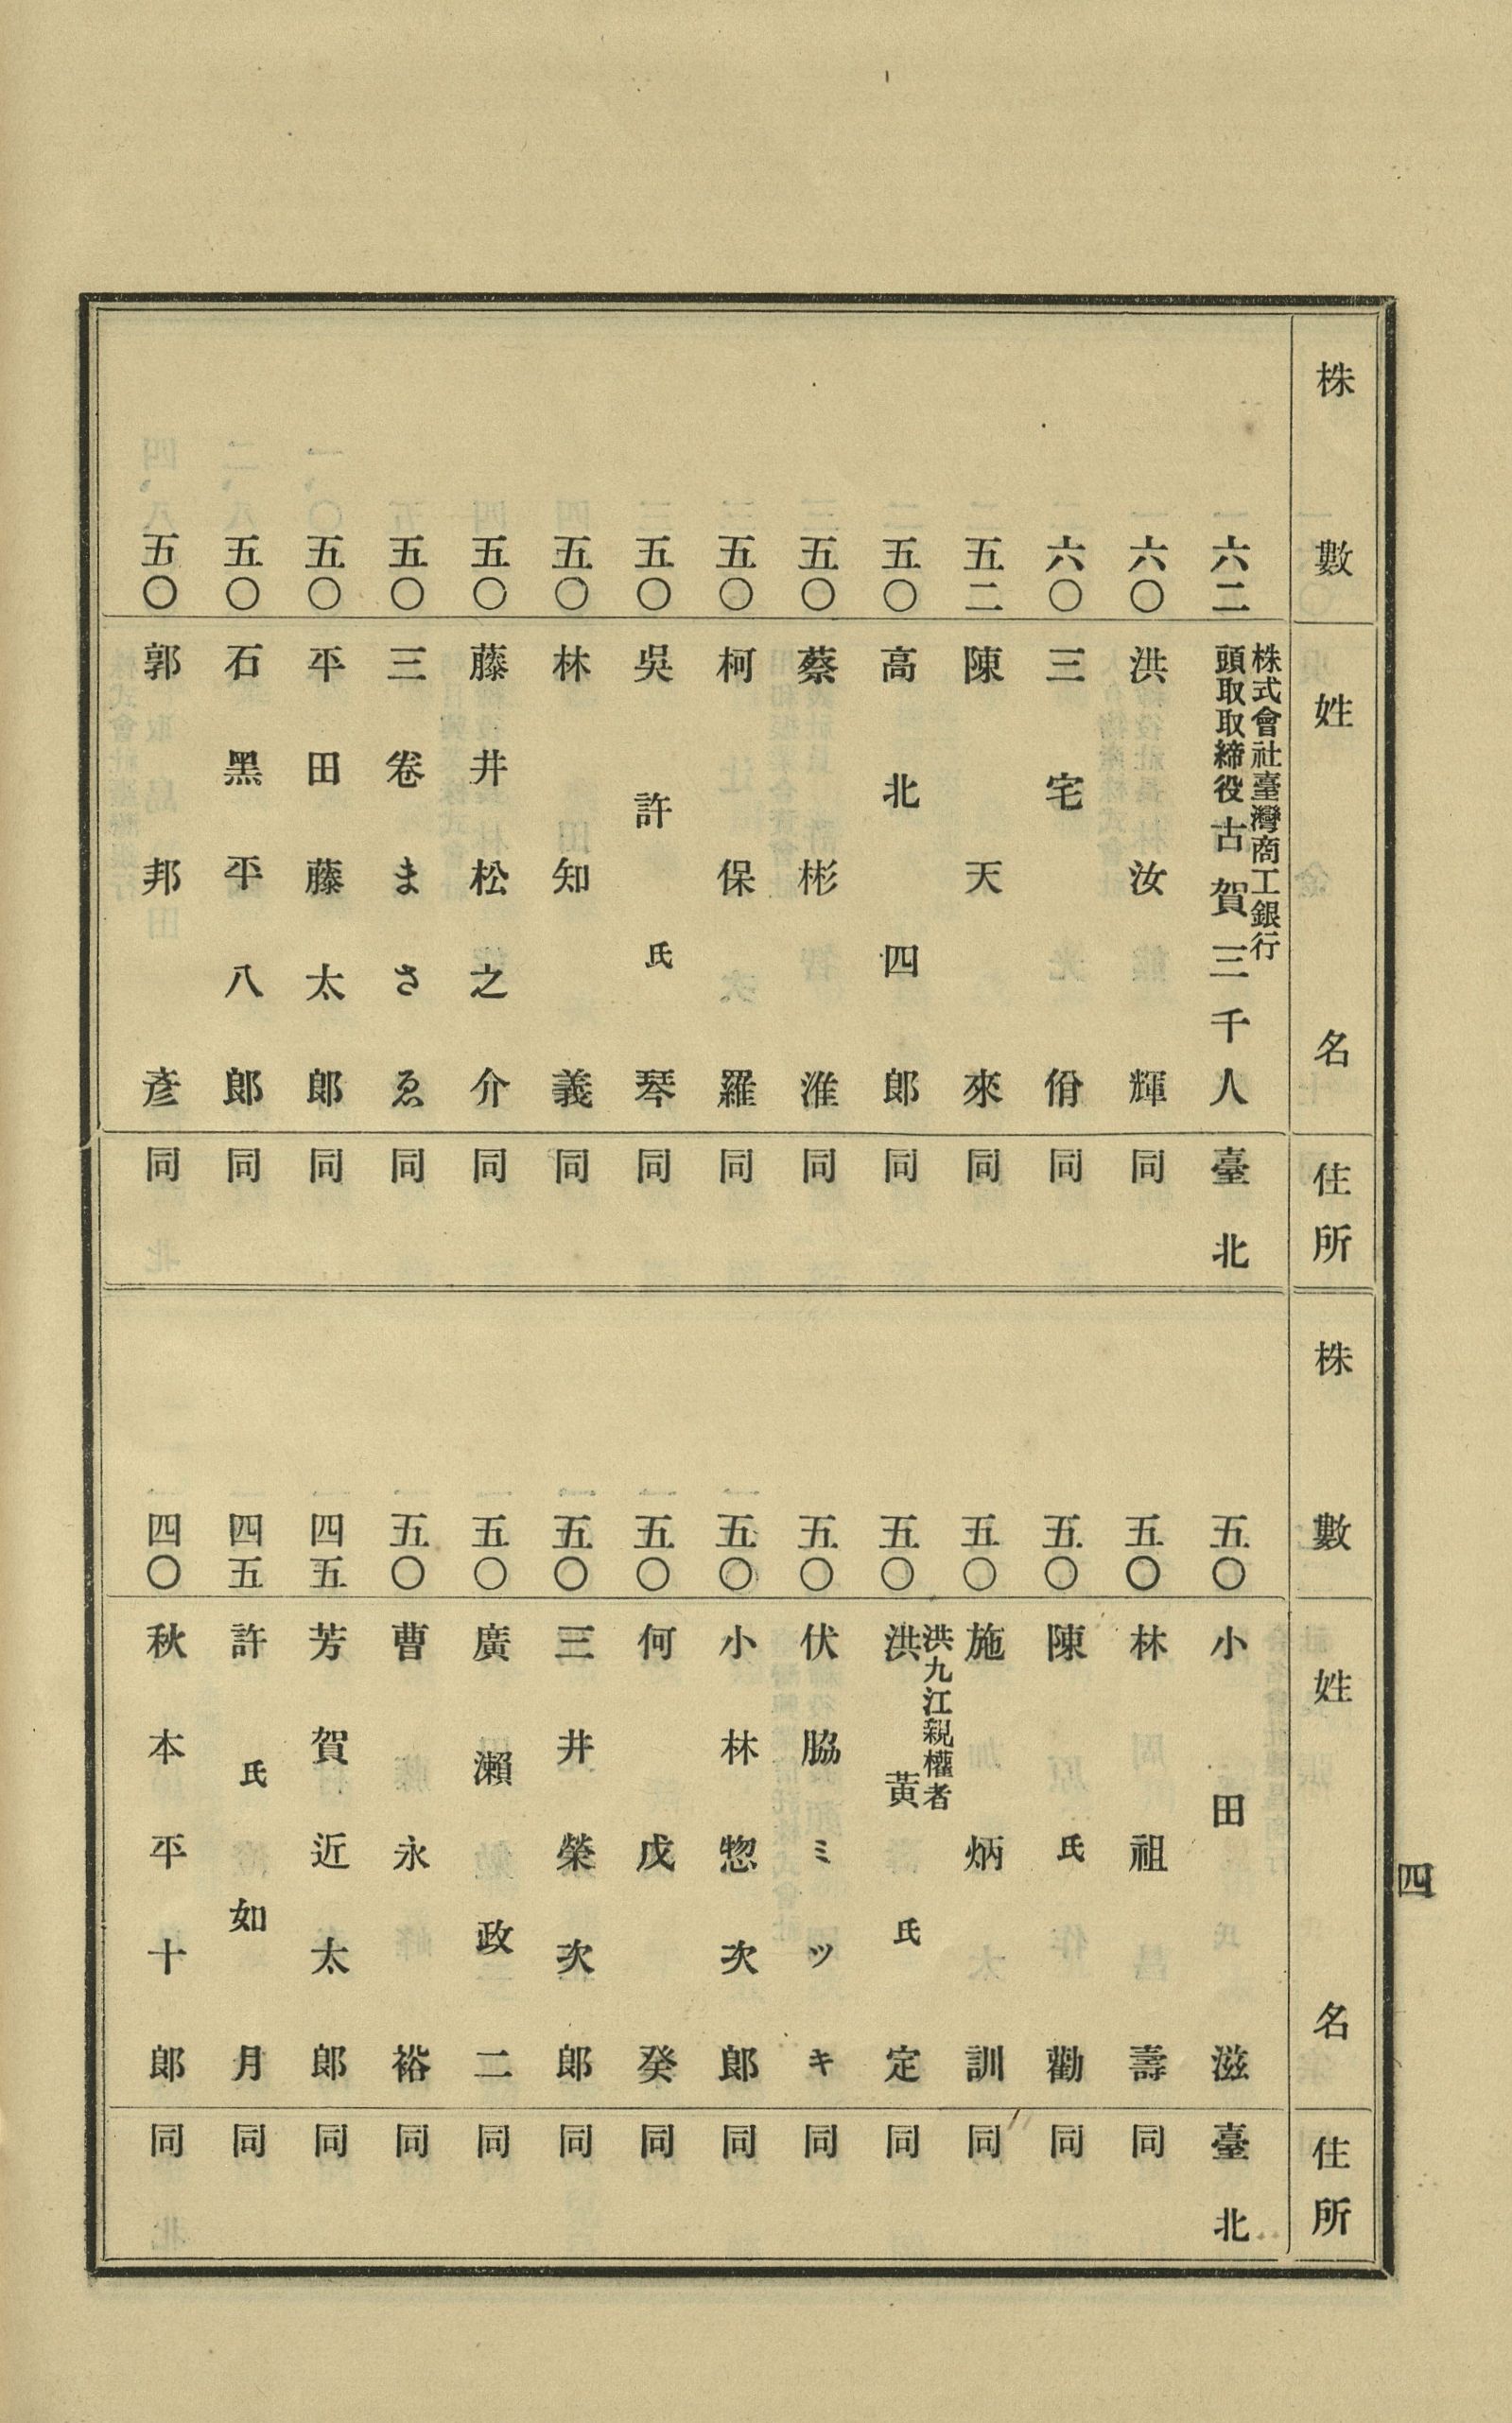 株數 姓名 住所
六二 株式會社臺灣商工銀行頭取取締役古賀三千人 臺北
六〇 洪汝輝 同
六〇 三宅佾 同
五二 陳天來 同
五〇 高北四郎 同
五〇 蔡彬淮 同
五〇 柯保羅 同
五〇 吳許氏琴 同
五〇 林知義 同
五〇 藤井松之介 同
五〇 三卷まさゑ 同
五〇 平田藤太郎 同
五〇 石黑平八郎 同
五〇 郭邦彥 同
株數 姓名 住所
五〇 小田滋 臺北
五〇 林祖壽 同
五〇 陳氏勸 同
五〇 施炳訓 同
五〇 洪九江親權者洪黃氏定 同
五〇 伏脇ミツキ 同
五〇 小林惣次郎 同
五〇 何戊癸 同
五〇 三井榮次郎 同
五〇 廣瀨政二 同
五〇 曹永裕 同
四五 芳賀近太郎 同
四五 許氏如月 同
四〇 秋本平十郎 同
四